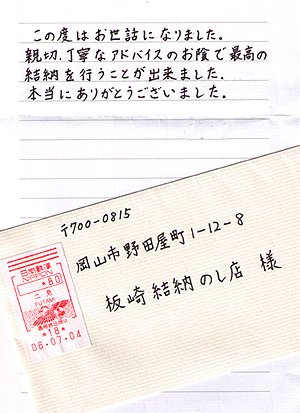 この度はお世話になりました。
親切、丁寧なアドバイスのお陰で最高の
結納を行うことが出来ました。
本当にありがとうございました。
〒700-0815
岡山市野田屋町1-12-8
板崎結納のし店 様
日本郵便
NIPPON
*80
二見
FUTAMI
*18*
06.07.04